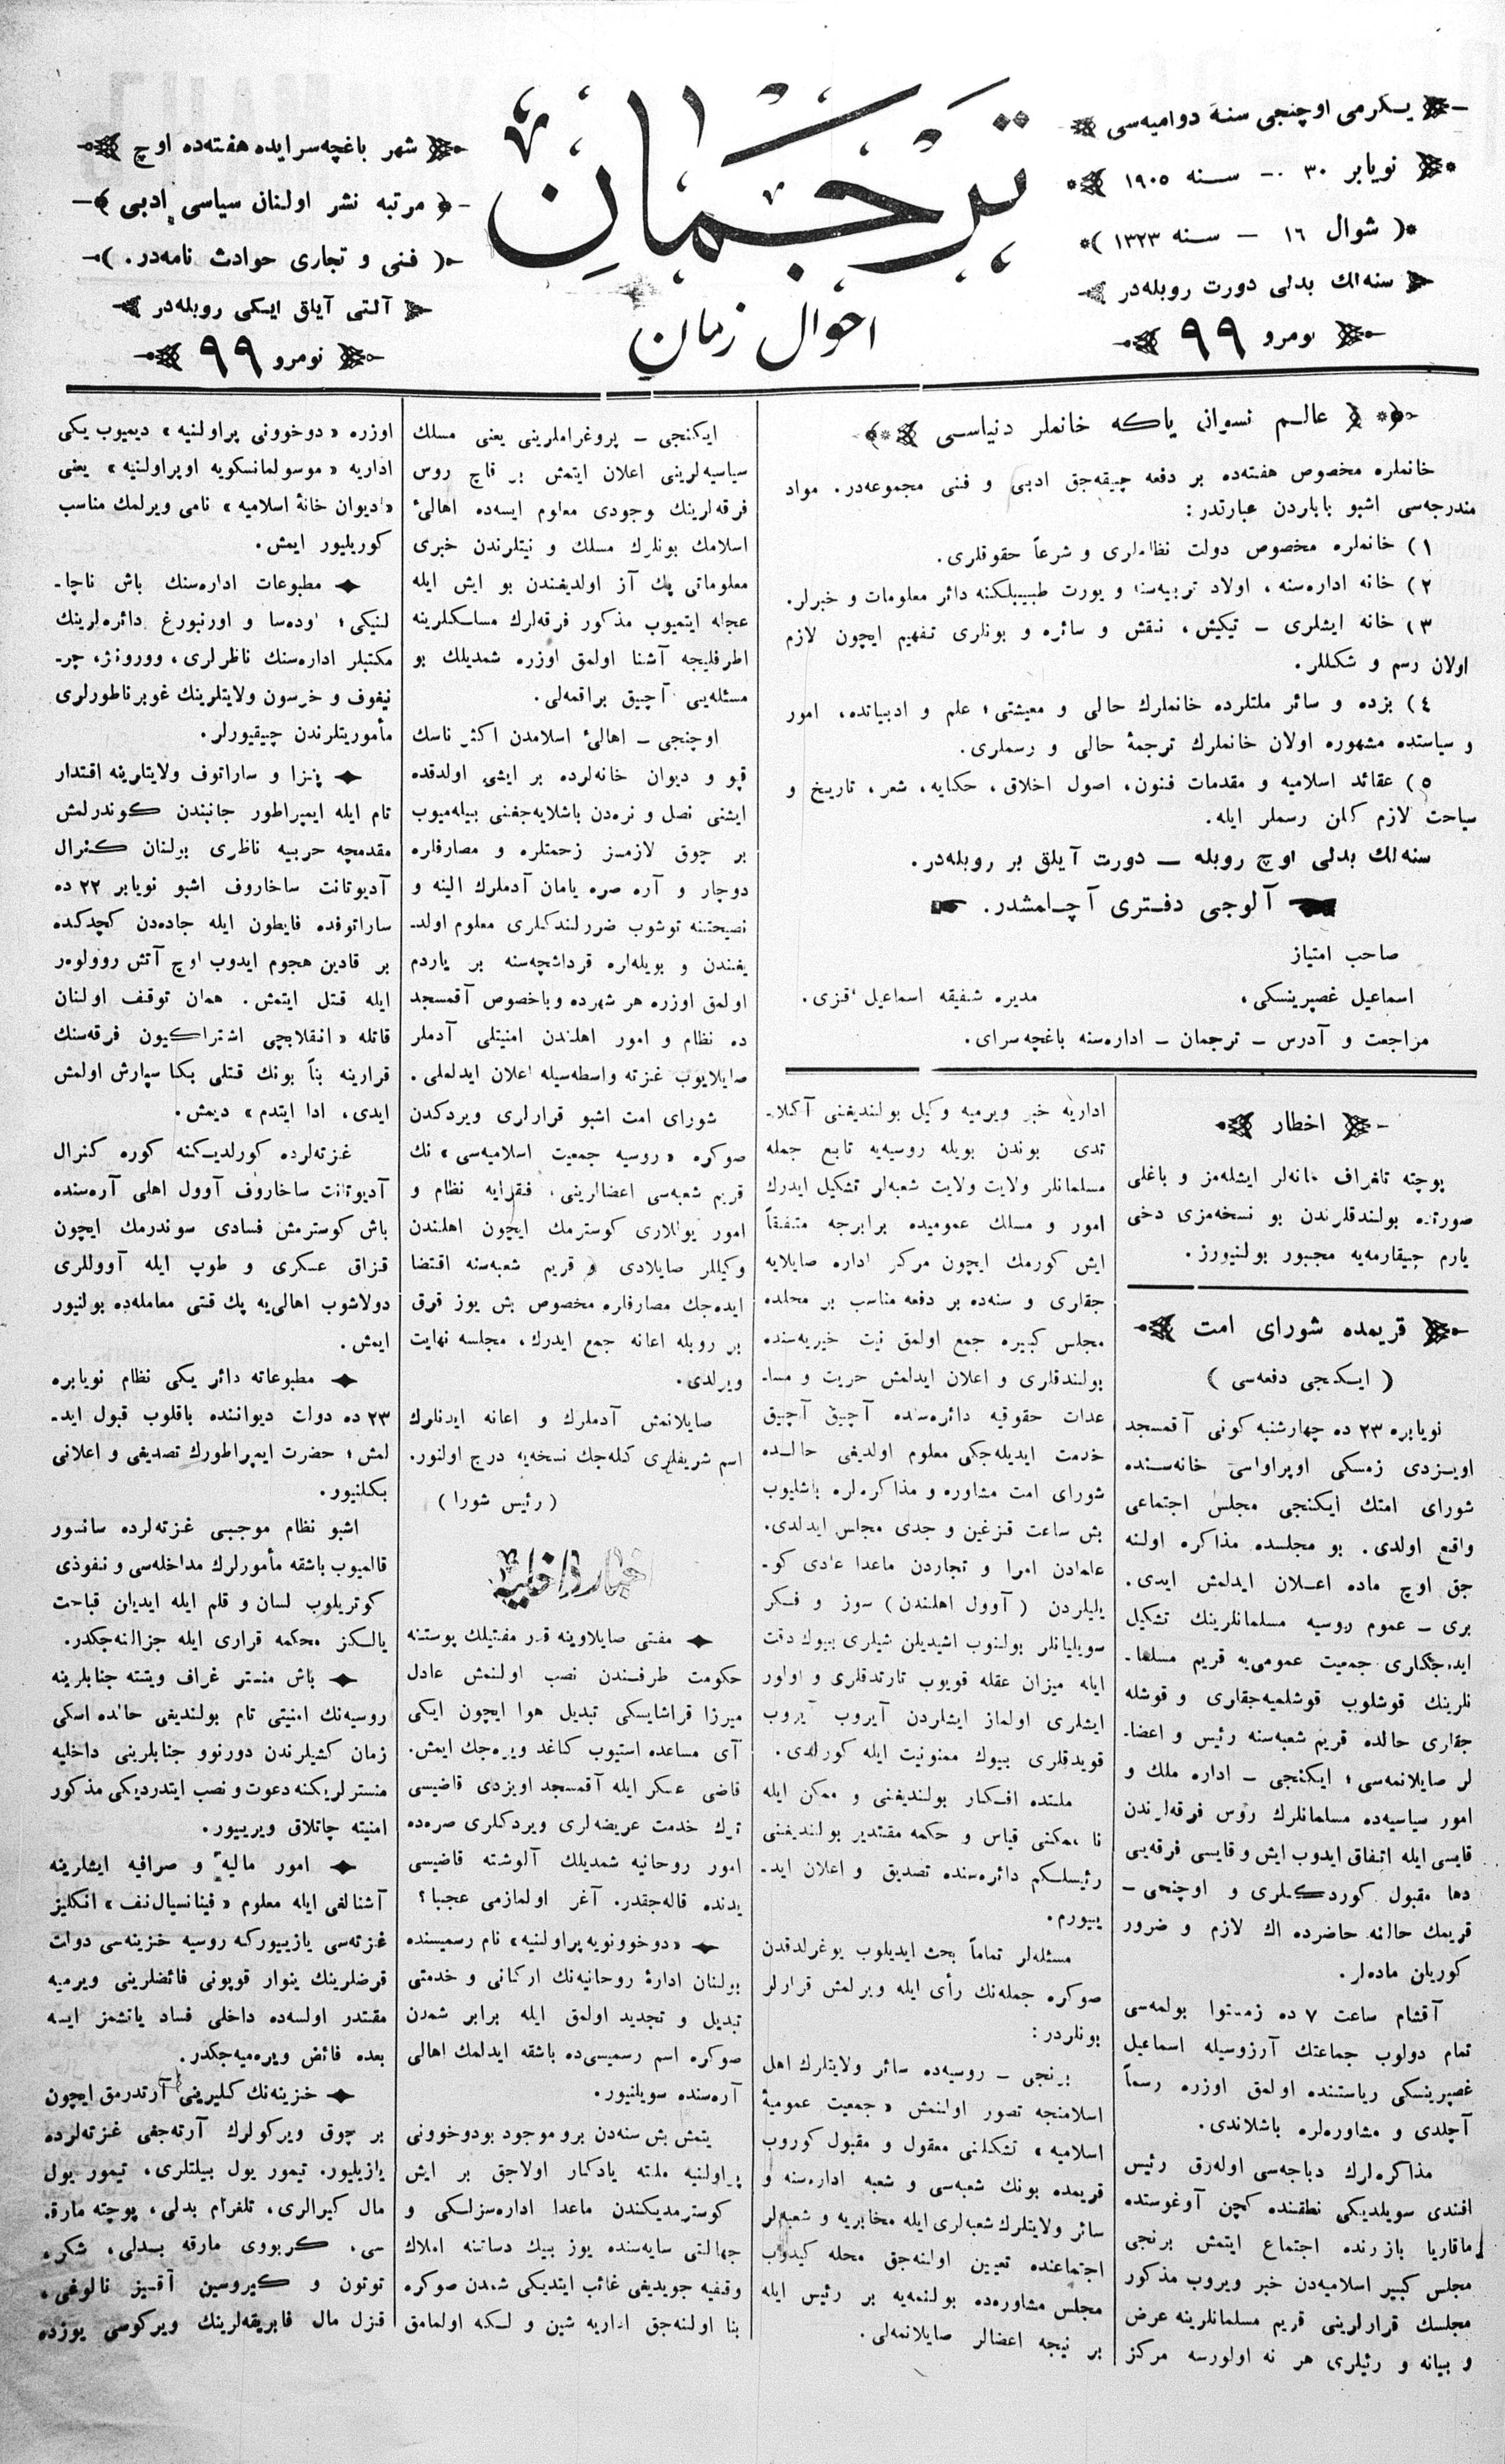 يكرمى اوچنجى سنۀ دواميه‌سى
نويابر ٣٠ — سنه ١٩٠٥
( شوال ١٦ — سنه ١٣٢٣ )
سنه‌لك بدلى دورت روبله‌در
نومرو ٩٩
ترجمان
احوال زمان
شهر باغچه‌سرايده هفته‌ده اوچ
مرتبه نشر اولنان سياسى ادبى
( فنى و تجارى حوادث نامه‌در. )
آلتى آيلق ايكى روبله‌در
نومرو ٩٩
عالم نسوان ياكه خانملر دنياسى
خانملره مخصوص هفته‌ده بر دفعه چيقه‌جق ادبى و فنى مجموعه‌در. مواد
مندرجه‌سى اشبو بابلردن عبارتدر:
١) خانملره مخصوص دولت نظاملرى و شرعاً حقوقلرى.
٢) خانه اداره‌سنه، اولاد تربيه‌سنه و يورت طبيبلكنه دائر معلومات و خبرلر.
٣) خانه ايشلرى — تيكيش، نقش و سائره و بونلرى تفهيم ايچون لازم
اولان رسم و شكللر.
٤) بزده و سائر ملتلرده خانملرك حالى و معيشتى؛ علم و ادبياتده، امور
و سياستده مشهوره اولان خانملرك ترجمۀ حالى و رسملرى.
٥) عقائد اسلاميه و مقدمات فنون، اصول اخلاق، حكايه، شعر، تاريخ و
سياحت لازم كلن رسملر ايله.
سنه‌لك بدلى اوچ روبله — دورت آيلق بر روبله‌در.
آلوجى دفترى آچلمشدر.
صاحب امتياز
اسماعيل غصپرينسكى، مديره شفيقه اسماعيل قزى.
مراجعت و آدرس — ترجمان — اداره‌سنه باغچه‌سراى.
اخطار
پوچته تلغراف خانه‌لر ايشله‌مز و باغلى
صورتده بولندقلرندن بو نسخه‌مزى دخى
يارم چيقارمه‌يه مجبور بولنيورز.
قريمده شوراى امت
( ايكنجى دفعه‌سى )
نويابره ٢٣ ده چهارشنبه كونى آقمسجد
اويزدى زمسكى اوپراواسى خانه‌سنده
شوراى امتك ايكنجى مجلس اجتماعى
واقع اولدى. بو مجلسده مذاكره اولنه
جق اوچ ماده اعلان ايدلمش ايدى.
برى — عموم روسيه مسلمانلرينك تشكيل
ايده‌جكلرى جمعيت عموميه‌يه قريم مسلما-
نلرينك قوشلوب قوشلميه‌جقلرى و قوشله
جقلرى حالده قريم شعبه‌سنه رئيس و اعضا-
لر صايلانمه‌سى؛ ايكنجى — اداره ملك و
امور سياسيه‌ده مسلمانلرك روس فرقه‌لرندن
قايسى ايله اتفاق ايدوب ايش و قايسى فرقه‌يى
دها مقبول كوردكلرى و اوچنجى —
قريمك حالنه حاضرده اك لازم و ضرور
كوريلن ماده‌لر.
آقشام ساعت ٧ ده زمستوا بولمه‌سى
تمام دولوب جماعتك آرزوسيله اسماعيل
غصپرينسكى رياستنده اولمق اوزره رسماً
آچلدى و مشاوره‌لره باشلاندى.
مذاكره‌لرك دباجه‌سى اوله‌رق رئيس
افندى سويلديكى نطقنده كچن آوغوستده
ماقاريا بازرنده اجتماع ايتمش برنجى
مجلس كبير اسلاميه‌دن خبر ويروب مذكور
مجلسك قرارلرينى قريم مسلمانلرينه عرض
و بيانه و رئيلرى هر نه اولورسه مركز
اداريه خبر ويرميه وكيل بولنديغنى آكلا-
تدى بوندن بويله روسيه‌يه تابع جمله
مسلمانلر ولايت ولايت شعبه‌لر تشكيل ايدرك
امور و مسلك عموميده برابرجه متفقاً
ايش كورمك ايچون مركز اداره صايلايه
جقلرى و سنه‌ده بر دفعه مناسب بر محلده
مجلس كبيره جمع اولمق نيت خيريه‌سنده
بولندقلرى و اعلان ايدلمش حريت و مسا-
عدات حقوقيه دائره‌سنده آچيق آچيق
خدمت ايديله‌جكى معلوم اولديغى حالده
شوراى امت مشاوره و مذاكره‌لره باشليوب
بش ساعت قزغين و جدى مجلس ايدلدى.
علمادن امرا و تجاردن ماعدا عادى كو-
يليلردن ( آوول اهلندن ) سوز و فكر
سويليانلر بولنوب اشيديلن شيلرى بيوك دقت
ايله ميزان عقله قويوب تارتدقلرى و اولور
ايشلرى اولماز ايشلردن آيروب آيروب
قويدقلرى بيوك ممنونيت ايله كورلدى.
ملتده افكار بولنديغنى و ممكن ايله
نا ممكنى قياس و حكمه مقتدير بولنديغنى
رئيسلكم دائره‌سنده تصديق و اعلان ايد-
ييورم.
مسئله‌لر تماماً بحث ايديلوب يوغرلدقدن
صوكره جمله‌نك رأى ايله ويرلمش قرارلر
بونلردر:
برنجى — روسيه‌ده سائر ولايتلرك اهل
اسلامنجه تصور اولنمش «جمعيت عموميۀ
اسلاميه» تشكلنى معقول و مقبول كوروب
قريمده بونك شعبه‌سى و شعبه اداره‌سنه و
سائر ولايتلرك شعبه‌لرى ايله مخابريه و شعبه‌لر
اجتماعنده تعيين اولنه‌جق محله كيدوب
مجلس مشاوره‌ده بولنمه‌يه بر رئيس ايله
بر نيجه اعضالر صايلانمه‌لى.
ايكنجى — پروغراملرينى يعنى مسلك
سياسيه‌لرينى اعلان ايتمش بر قاچ روس
فرقه‌لرينك وجودى معلوم ايسه‌ده اهالئ
اسلامك بونلرك مسلك و نيتلرندن خبرى
معلوماتى پك آز اولديغندن بو ايش ايله
عجله ايتميوب مذكور فرقه‌لرك مسلكلرينه
اطرفليجه آشنا اولمق اوزره شمديلك بو
مسئله‌يى آچيق براقمه‌لى.
اوچنجى — اهالئ اسلامدن اكثر ناسك
قپو و ديوان خانه‌لرده بر ايشى اولدقده
ايشنى نصل و نره‌دن باشلايه‌جغنى بيله‌ميوب
بر چوق لازمسز زحمتلره و مصارفلره
دوچار و آره صره يامان آدملرك الينه و
نصيحتنه توشوب ضررلندكلرى معلوم اولد-
يغندن و بويله‌لره قرداشچه‌سنه بر ياردم
اولمق اوزره هر شهرده و باخصوص آقمسجد
ده نظام و امور اهلندن امنيتلى آدملر
صايلايوب غزته واسطه‌سيله اعلان ايدلملى.
شوراى امت اشبو قرارلرى ويردكدن
صوكره «روسيه جمعيت اسلاميه‌سى» نك
قريم شعبه‌سى اعضالرينى، فقرايه نظام و
امور يوللارى كوسترمك ايچون اهلندن
وكيللر صايلادى و قريم شعبه‌سنه اقتضا
ايده‌جك مصارفلره مخصوص بش يوز قرق
بر روبله اعانه جمع ايدرك، مجلسه نهايت
ويرلدى.
صايلانمش آدملرك و اعانه ايدنلرك
اسم شريفلرى كله‌جك نسخه‌يه درج اولنور.
( رئيس شورا )
اخبار داخليه
مفتى صايلاوينه قدر مفتيلك پوستنه
حكومت طرفندن نصب اولنمش عادل
ميرزا قراشايسكى تبديل هوا ايچون ايكى
آى مساعده استيوب كاغد ويره‌جك ايمش.
قاضى عسكر ايله آقمسجد اويزدى قاضيسى
ترك خدمت عريضه‌لرى ويردكلرى صره‌ده
امور روحانيه شمديلك آلوشته قاضيسى
يدنده قاله‌جقدر. آغر اولمازمى عجبا؟
«دوخوونويه پراولنيه» نام رسميسنده
بولنان ادارۀ روحانيه‌نك اركانى و خدمتى
تبديل و تجديد اولمق ايله برابر شمدن
صوكره اسم رسميسى‌ده باشقه ايدلمك اهالى
آره‌سنده سويلنيور.
يتمش بش سنه‌دن برو موجود بو دوخوونى
پراولنيه ملته يادكار اولاجق بر ايش
كوسترمديكندن ماعدا اداره‌سزلكى و
جهالتى سايه‌سنده يوز بيك دساتنه املاك
وقفيه جويديغى غائب ايتديكى شمدن صوكره
بنا اولنه‌جق اداريه شين و لكه اولمامق
اوزره «دوخوونى پراولنيه» ديميوب يكى
اداريه «موسولمانسكويه اوپراولنيه» يعنى
«ديوان خانۀ اسلاميه» نامى ويرلمك مناسب
كوريليور ايمش.
مطبوعات اداره‌سنك باش ناچا-
لنيكى؛ اوده‌سا و اورنبورغ دائره‌لرينك
مكتبلر اداره‌سنك ناظرلرى، وورونژ، چر-
نيغوف و خرسون ولايتلرينك غوبرناطورلرى
مأموريتلرندن چيقيورلر.
پنزا و ساراتوف ولايتلرينه اقتدار
تام ايله ايمپراطور جانبندن كوندرلمش
مقدمچه حربيه ناظرى بولنان كنرال
آديوتانت ساخاروف اشبو نويابر ٢٢ ده
ساراتوفده فايطون ايله جاده‌دن كچدكده
بر قادين هجوم ايدوب اوچ آتش روولوور
ايله قتل ايتمش. همان توقف اولنان
قاتله «انقلابچى اشتراكيون فرقه‌سنك
قرارينه بناً بونك قتلى بكا سپارش اولمش
ايدى، ادا ايتدم» ديمش.
غزته‌لرده كورلديكنه كوره كنرال
آديوتانت ساخاروف آوول اهلى آره‌سنده
باش كوسترمش فسادى سوندرمك ايچون
قزاق عسكرى و طوپ ايله آووللرى
دولاشوب اهالى‌يه پك قتى معامله‌ده بولنيور
ايمش.
مطبوعاته دائر يكى نظام نويابره
٢٣ ده دولت ديواننده باقلوب قبول ايد-
لمش؛ حضرت ايمپراطورك تصديغى و اعلانى
بكلنيور.
اشبو نظام موجبى غزته‌لرده سانسور
قالميوب باشقه مأمورلرك مداخله‌سى و نفوذى
كوتريلوب لسان و قلم ايله ايديان قباحت
يالكز محكمه قرارى ايله جزالنه‌جكدر.
باش منستر غراف ويتته جنابلرينه
روسيه‌نك امنيتى تام بولنديغى حالده اسكى
زمان كشيلرندن دورنوو جنابلرينى داخليه
منسترلريكنه دعوت و نصب ايتدرديكى مذكور
امنيته چاتلاق ويرييور.
امور ماليه و صرافيه ايشلرينه
آشنالغى ايله معلوم «فينانسيال نف» انكليز
غزته‌سى يازييوركه روسيه خزينه‌سى دولت
قرضلرينك ينوار قوپونى فائضلرينى ويرميه
مقتدر اولسه‌ده داخلى فساد ياتشمز ايسه
بعده فائض ويره‌ميه‌جكدر.
خزينه‌نك كليرينى آرتدرمق ايچون
بر چوق ويركولرك آرته‌جغى غزته‌لرده
يازيليور. تيمور يول بيلتلرى، تيمور يول
مال كيرالرى، تلغرام بدلى، پوچته مارقه
سى، كربووى مارقه بدلى، شكر،
توتون و كيروسين آقسيز نالوغى،
قزل مال فابريقه‌لرينك ويركوسى يوزده